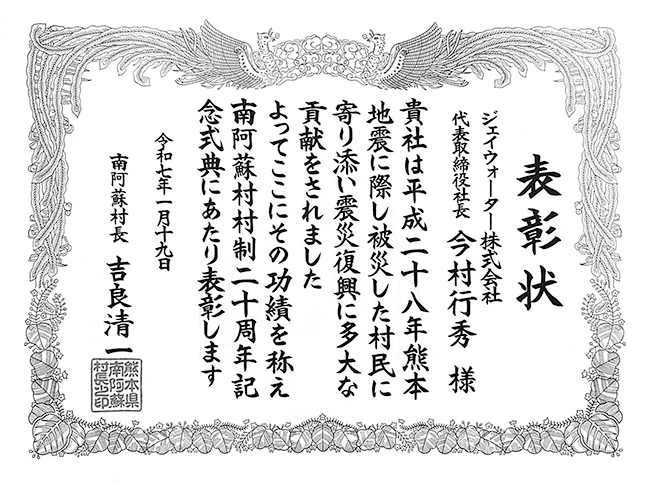 表彰状
ジェイウォーター株式会社
代表取締役社長 今村行秀 様
貴社は平成二十八年熊本
地震に際し被災した村民に
寄り添い震災復興に多大な
貢献をされました
よってここにその功績を称え
南阿蘇村村制二十周年記
念式典にあたり表彰します
令和七年一月十九日
南阿蘇村長 吉良清一
熊本県
南阿蘇
村長之印